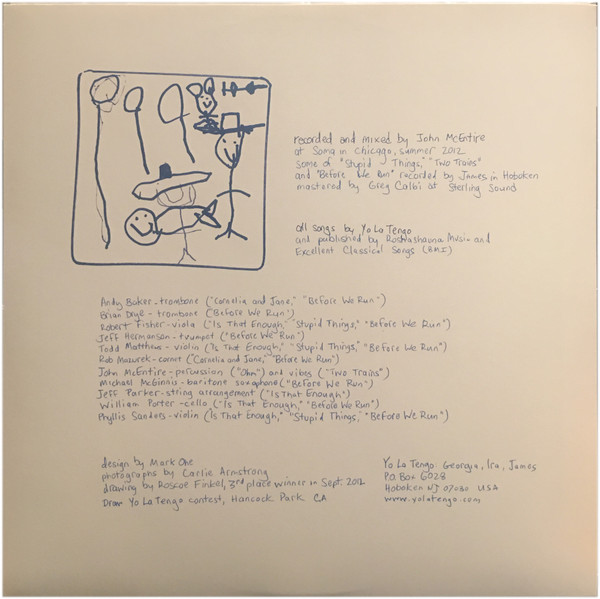 recorded and mixed by John McEntire
at Soma in Chicago, summer 2012
some of "Stupid Things," "Two Trains"
and "Before We Run" recorded by James in Hoboken
mastered by Greg Calbi at Sterling Sound
all songs by Yo La Tengo
and published by Roshashauna Music and
Excellent Classical Songs (BMI)
Andy Baker - trombone ("Cornelia and Jane," "Before We Run")
Brian Drye - trombone ("Before We Run")
Robert Fisher - viola ("Is That Enough," "Stupid Things," "Before We Run")
Jeff Hermanson - trumpet ("Before We Run")
Todd Matthews - violin ("Is That Enough," "Stupid Things," "Before We Run")
Rob Mazurek - cornet ("Cornelia and Jane," "Before We Run")
John McEntire - percussion ("Ohm") and vibes ("Two Trains")
Michael McGinnis - baritone saxophone ("Before We Run")
Jeff Parker - string arrangement ("Is That Enough")
William Porter - cello ("Is That Enough," "Before We Run")
Phyllis Sanders - violin (Is That Enough," "Stupid Things," "Before We Run")
design by Mark One
photographs by Carlie Armstrong
drawing by Roscoe Finkel, 3rd place winner in Sept. 2012
Draw Yo La Tengo contest, Hancock Park CA
Yo La Tengo: Georgia, Ira, James
P.O. Box 6028
Hoboken NJ 07030 USA
www.yolatengo.com